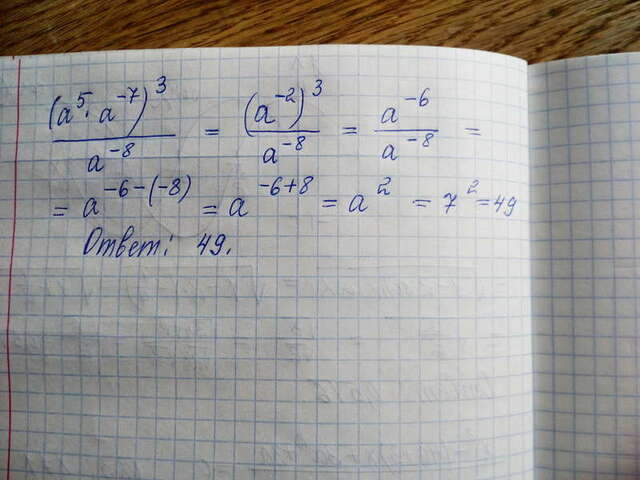 (a⁵ · a⁻⁷)³ / a⁻⁸ = (a⁻²)³ / a⁻⁸ = a⁻⁶ / a⁻⁸ =
= a⁻⁶⁻⁽⁻⁸⁾ = a⁻⁶⁺⁸ = a² = 7² = 49
Ответ: 49.